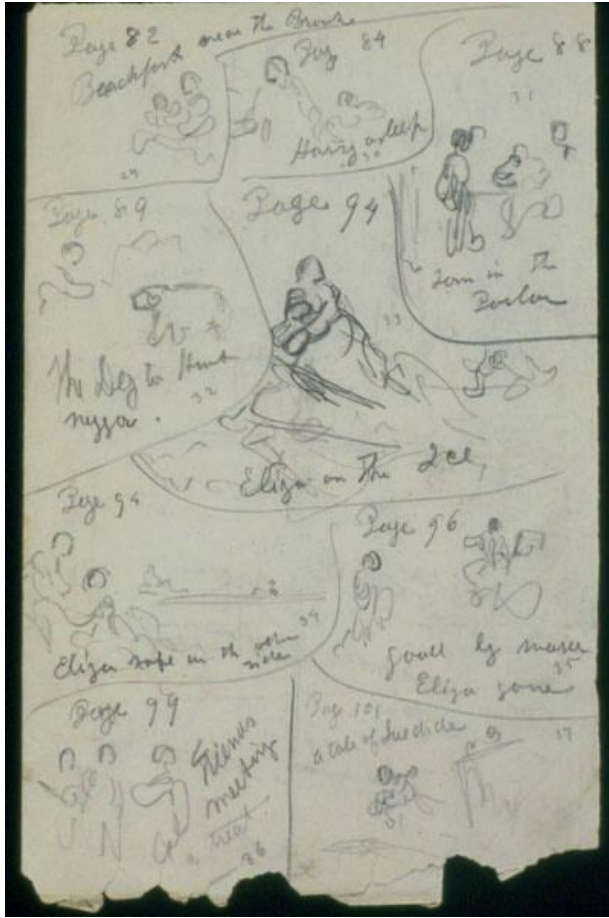 Page 82
Breackfast near the Brooke
29
Page 84
Harry asleep
30
Page 88
31
Tom in the
Parlor
Page 89
The Dog to Hunt
nyger.
32
Page 94
33
Eliza on the Ice,
Page 94
Eliza safe on the other
side
34
Page 96
good by
Eliza gone
35
Page 99
friends
meeting
a treat
36
Page 101
a tale of Suicide
37